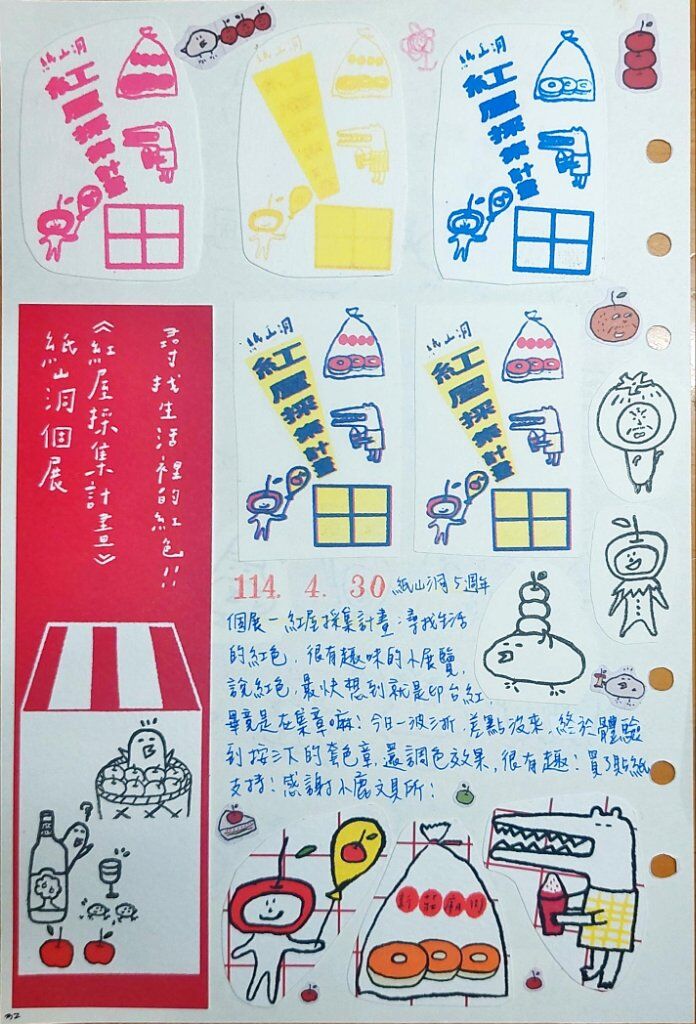 紙山洞
紅屋採集計畫
紙山洞
紙山洞
紅屋採集計畫
尋找生活裡的紅色!!
《紅屋採集計畫》
紙山洞個展
紙山洞
紅屋採集計畫
紙山洞
紅屋採集計畫
114. 4. 30 紙山洞5週年
個展-紅屋採集計畫:尋找生活
的紅色,很有趣味的小展覽,
說紅色,最快想到就是印台紅,
畢竟是在集章嘛!今日一波三折,差點沒來,終於體驗
到按壓的套色章,還調色效果,很有趣!買了貼紙
支持!感謝小鹿文具所!